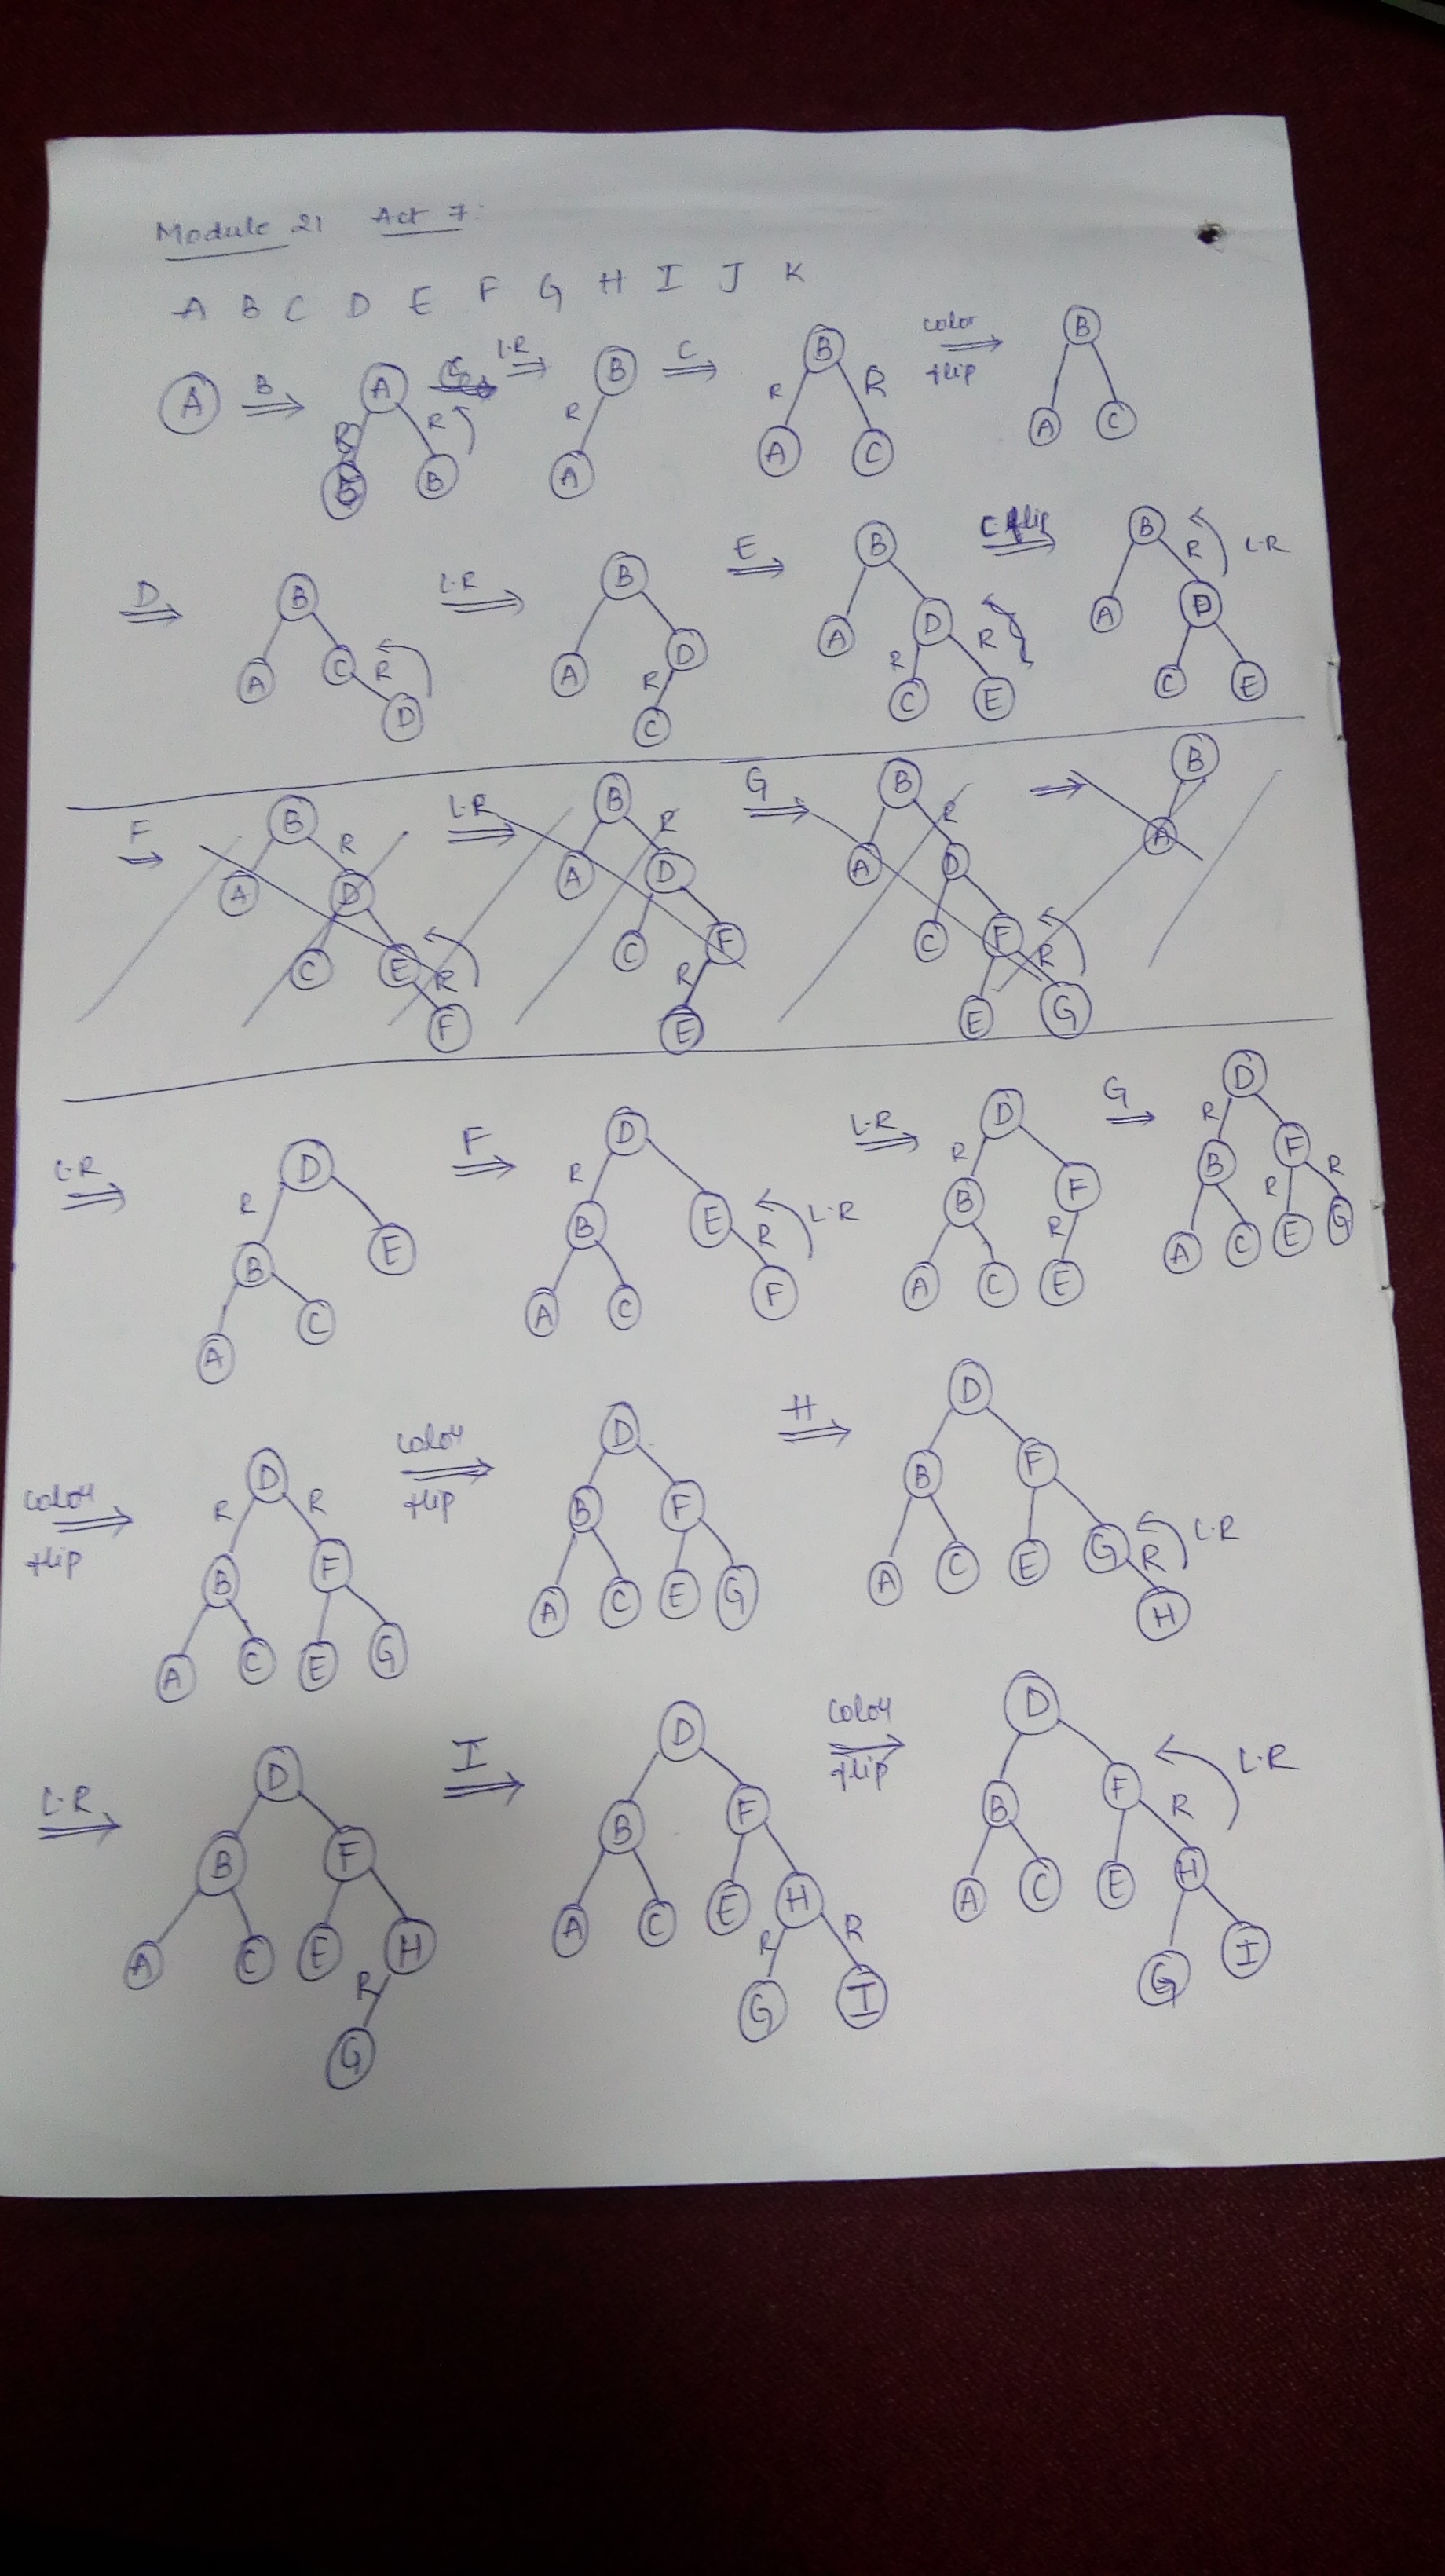 Module 21 Act 7:
A B C D E F G H I J K
A B A R B L·R B R A C B R R A C color flip B A C
D B A C R D L·R B A D R C E B A D R R C E C·flip B R L·R A D C E
F B R A D C E R F L·R B R A D C F R E G B R A D C F R E G B A
L·R D R B E A C F D R B E R L·R A C F L·R D R B F R A C E G D R B F R R A C E G
color flip D R R B F A C E G color flip D B F A C E G H D B F A C E G R L·R H
L·R D B F A C E H R G I D B F A C E H R R G I color flip D L·R B F R A C E H G I